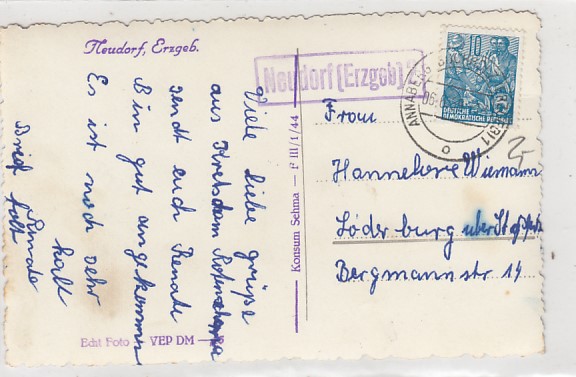 Neudorf, Erzgeb.
Neudorf (Erzgeb)
10
DEUTSCHE
DEMOKRATISCHE REPUBLIK
ANNABERG
Viele liebe grüße
aus
sendt euch Renate
Bin gut angekommen
Es ist noch sehr
kalt
Renate
Brief folt
Konsum Sehma — P III/1/44
Echt Foto
VEP DM
Fam
Hannelore Wiemann
Löderburg über Staßfurt
Bergmannstr 14